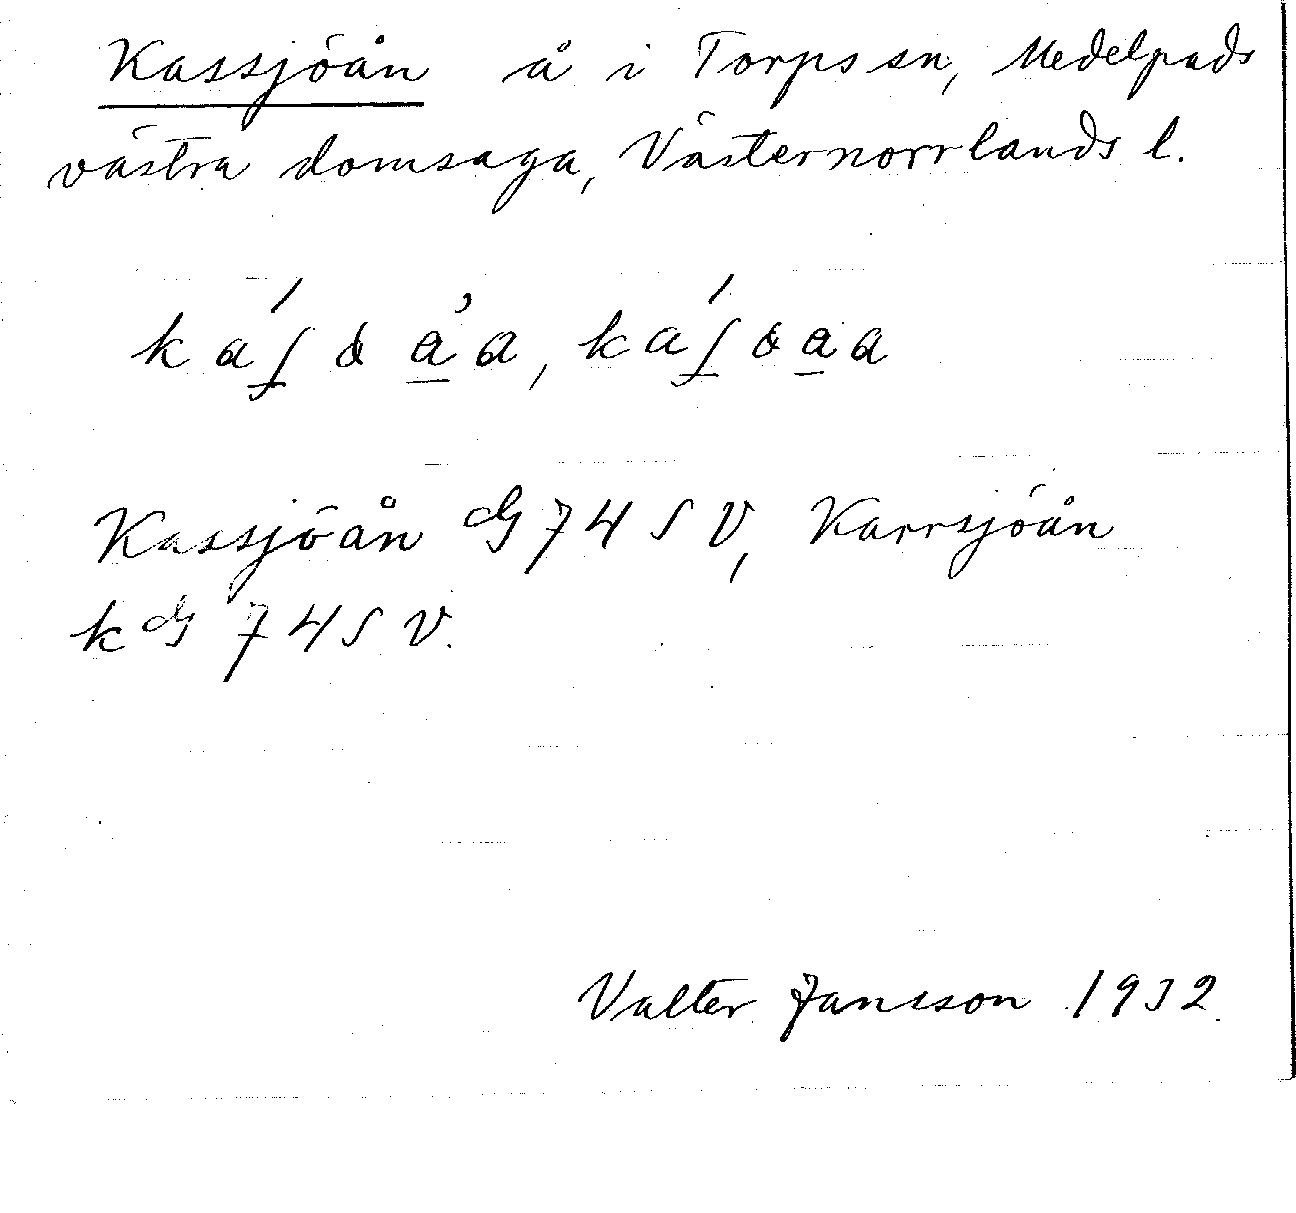 Kassjöån å i Torps sn, Medelpads
västra domsaga, Västernorrlands l.
Kassjöån dG 74 SV, Karrsjöån
k dG 74 SV.
Valter Jansson 1932.